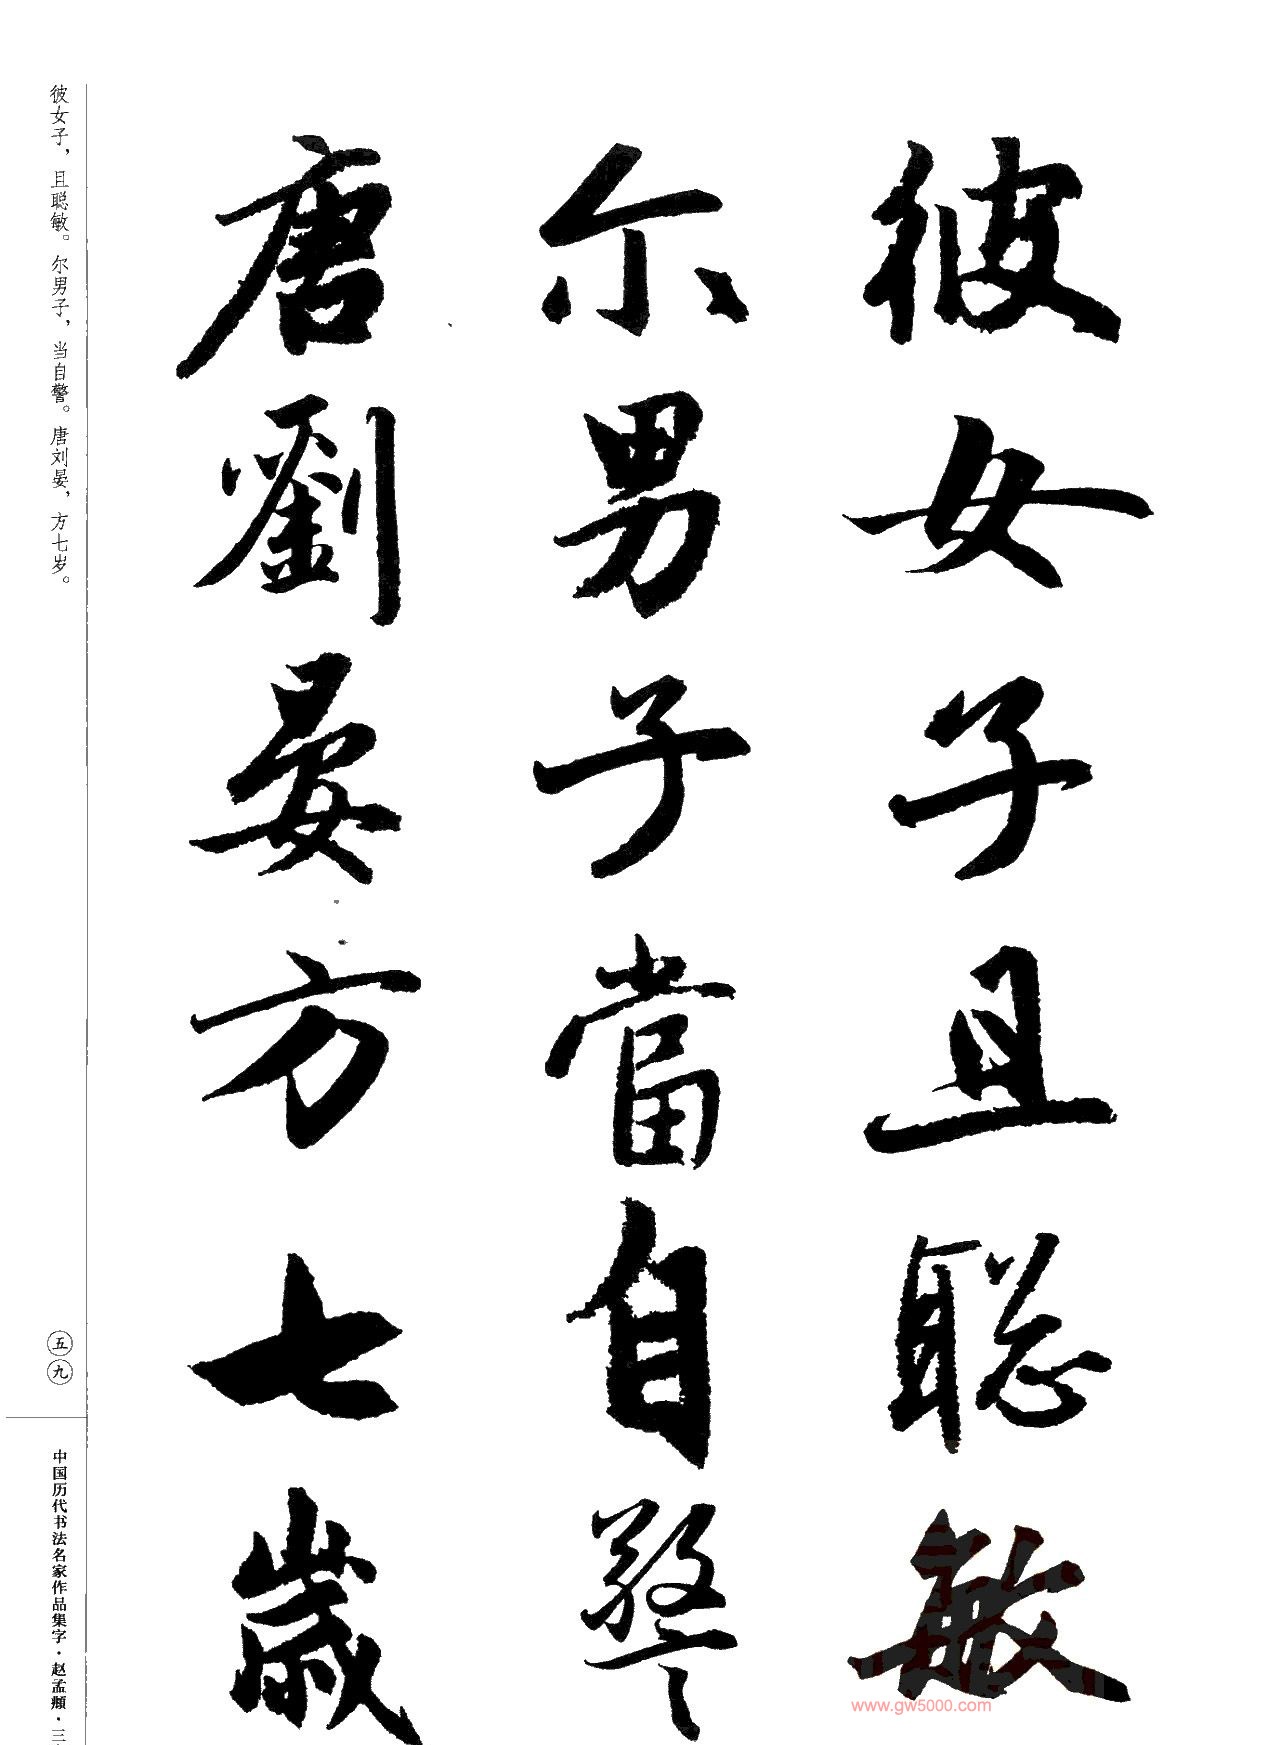 彼女子且聪敏
尔男子當自警
唐劉晏方七歲
彼女子，且聪敏。尔男子，当自警。唐刘晏，方七岁。
五九
中国历代书法名家作品集字·赵孟頫·三
www.gw5000.com